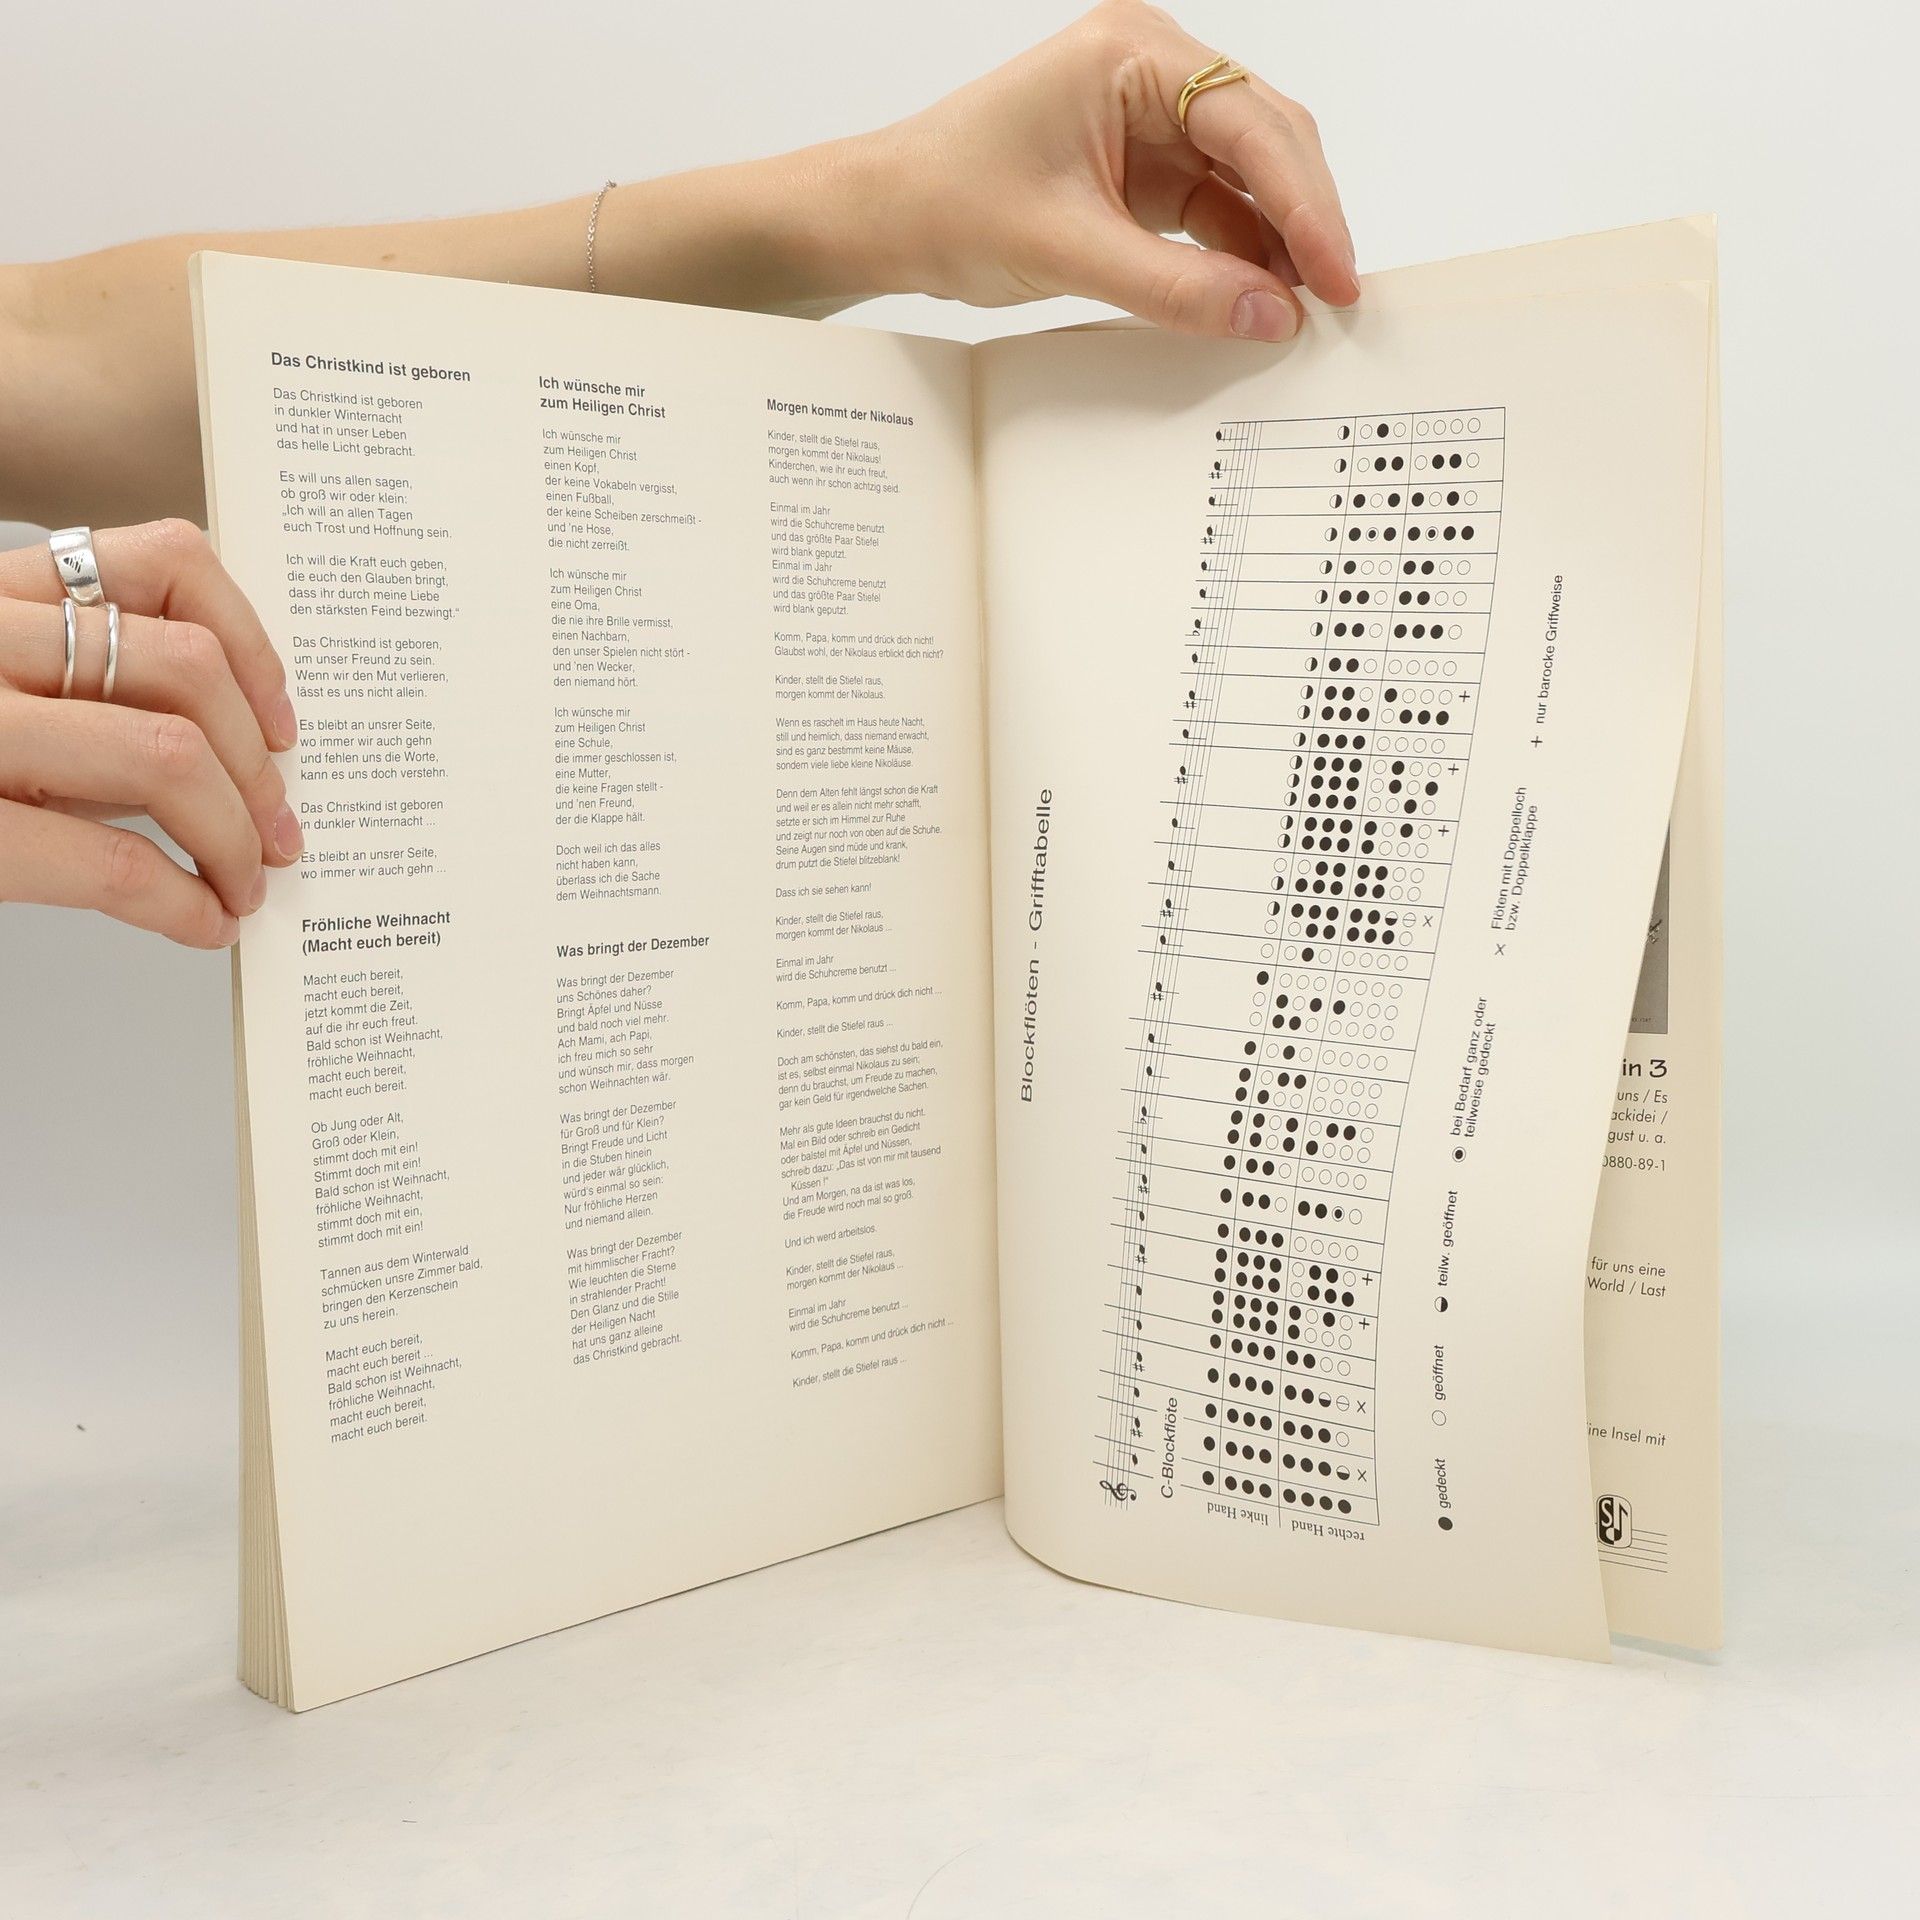 Das Christkind ist geboren
Das Christkind ist geboren
in dunkler Winternacht
und hat in unser Leben
das helle Licht gebracht.
Es will uns allen sagen,
ob groß wir oder klein:
„Ich will an allen Tagen
euch Trost und Hoffnung sein.
Ich will die Kraft euch geben,
die euch den Glauben bringt,
dass ihr durch meine Liebe
den stärksten Feind bezwingt.“
Das Christkind ist geboren,
um unser Freund zu sein.
Wenn wir den Mut verlieren,
lässt es uns nicht allein.
Es bleibt an unsrer Seite,
wo immer wir auch gehn
und fehlen uns die Worte,
kann es uns doch verstehn.
Das Christkind ist geboren
in dunkler Winternacht ...
Es bleibt an unsrer Seite,
wo immer wir auch gehn ...
Fröhliche Weihnacht
(Macht euch bereit)
Macht euch bereit,
macht euch bereit,
jetzt kommt die Zeit,
auf die ihr euch freut.
Bald schon ist Weihnacht,
fröhliche Weihnacht,
macht euch bereit,
macht euch bereit.
Ob Jung oder Alt,
Groß oder Klein,
stimmt doch mit ein!
Stimmt doch mit ein!
Bald schon ist Weihnacht,
fröhliche Weihnacht,
stimmt doch mit ein,
stimmt doch mit ein!
Tannen aus dem Winterwald
schmücken unsre Zimmer bald,
bringen den Kerzenschein
zu uns herein.
Macht euch bereit,
macht euch bereit ...
Bald schon ist Weihnacht,
fröhliche Weihnacht,
macht euch bereit,
macht euch bereit.
Ich wünsche mir
zum Heiligen Christ
Ich wünsche mir
zum Heiligen Christ
einen Kopf,
der keine Vokabeln vergisst,
einen Fußball,
der keine Scheiben zerschmeißt -
und 'ne Hose,
die nicht zerreißt.
Ich wünsche mir
zum Heiligen Christ
eine Oma,
die nie ihre Brille vermisst,
einen Nachbarn,
den unser Spielen nicht stört -
und 'nen Wecker,
den niemand hört.
Ich wünsche mir
zum Heiligen Christ
eine Schule,
die immer geschlossen ist,
eine Mutter,
die keine Fragen stellt -
und 'nen Freund,
der die Klappe hält.
Doch weil ich das alles
nicht haben kann,
überlass ich die Sache
dem Weihnachtsmann.
Was bringt der Dezember
Was bringt der Dezember
uns Schönes daher?
Bringt Äpfel und Nüsse
und bald noch viel mehr.
Ach Mami, ach Papi,
ich freu mich so sehr
und wünsch mir, dass morgen
schon Weihnachten wär.
Was bringt der Dezember
für Groß und für Klein?
Bringt Freude und Licht
in die Stuben hinein
und jeder wär glücklich,
würd's einmal so sein:
Nur fröhliche Herzen
und niemand allein.
Was bringt der Dezember
mit himmlischer Fracht?
Wie leuchten die Sterne
in strahlender Pracht!
Den Glanz und die Stille
der Heiligen Nacht
hat uns ganz alleine
das Christkind gebracht.
Morgen kommt der Nikolaus
Kinder, stellt die Stiefel raus,
morgen kommt der Nikolaus!
Kinderchen, wie ihr euch freut,
auch wenn ihr schon achtzig seid.
Einmal im Jahr
wird die Schuhcreme benutzt
und das größte Paar Stiefel
wird blank geputzt.
Einmal im Jahr
wird die Schuhcreme benutzt
und das größte Paar Stiefel
wird blank geputzt.
Komm, Papa, komm und drück dich nicht!
Glaubst wohl, der Nikolaus erblickt dich nicht?
Kinder, stellt die Stiefel raus,
morgen kommt der Nikolaus.
Wenn es raschelt im Haus heute Nacht,
still und heimlich, dass niemand erwacht,
sind es ganz bestimmt keine Mäuse,
sondern viele liebe kleine Nikoläuse.
Denn dem Alten fehlt längst schon die Kraft
und weil er es allein nicht mehr schafft,
setzte er sich im Himmel zur Ruhe
und zeigt nur noch von oben auf die Schuhe.
Seine Augen sind müde und krank,
drum putzt die Stiefel blitzeblank!
Dass ich sie sehen kann!
Kinder, stellt die Stiefel raus,
morgen kommt der Nikolaus ...
Einmal im Jahr
wird die Schuhcreme benutzt ...
Komm, Papa, komm und drück dich nicht ...
Kinder, stellt die Stiefel raus ...
Doch am schönsten, das siehst du bald ein,
ist es, selbst einmal Nikolaus zu sein;
denn du brauchst, um Freude zu machen,
gar kein Geld für irgendwelche Sachen.
Mehr als gute Ideen brauchst du nicht.
Mal ein Bild oder schreib ein Gedicht
oder balstel mit Äpfel und Nüssen,
schreib dazu: „Das ist von mir mit tausend
Küssen !“
Und am Morgen, na da ist was los,
die Freude wird noch mal so groß.
Und ich werd arbeitslos.
Kinder, stellt die Stiefel raus,
morgen kommt der Nikolaus ...
Einmal im Jahr
wird die Schuhcreme benutzt ...
Komm, Papa, komm und drück dich nicht ...
Kinder, stellt die Stiefel raus ...
Blockflöten - Grifftabelle
C-Blockflöte
linke Hand
rechte Hand
gedeckt
geöffnet
teilw. geöffnet
bei Bedarf ganz oder
teilweise gedeckt
x Flöten mit Doppelloch
bzw. Doppelklappe
+ nur barocke Griffweise
in 3
uns / Es
ackidei /
gust u. a.
0880-89-1
für uns eine
World / Last
ine Insel mit